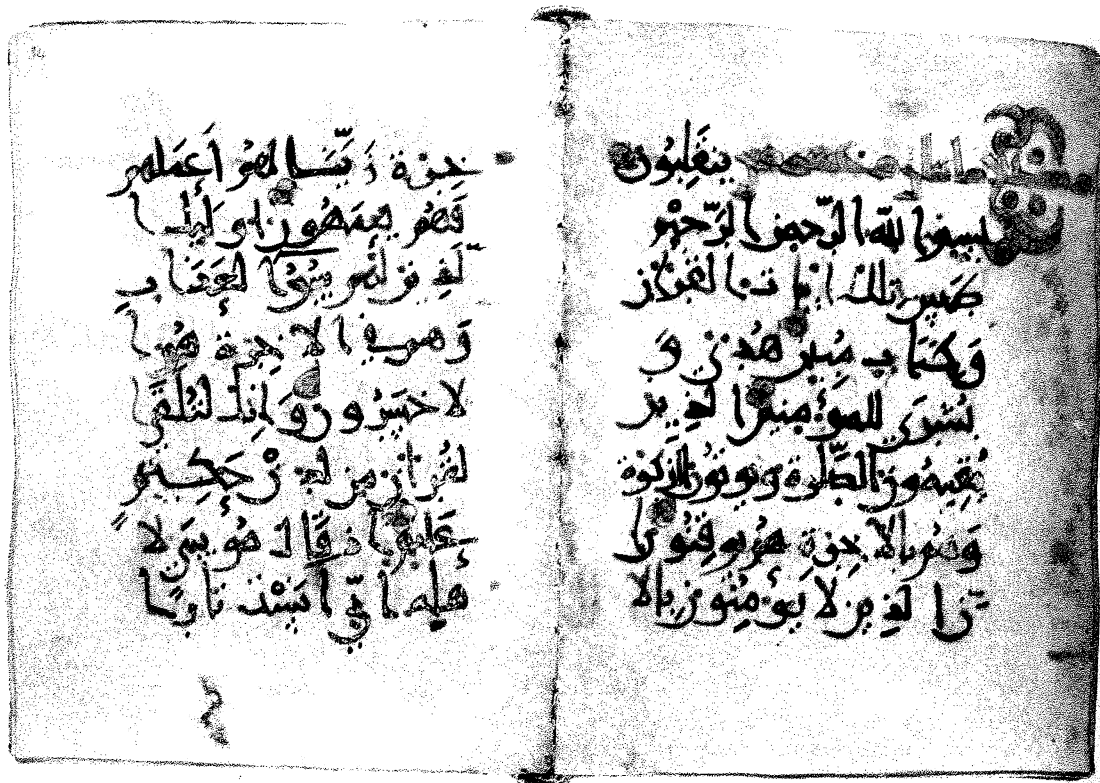 ينقلبون
بسم الله الرحمن الرحيم
طس تلك ايت القران
وكتاب مبين هدى و
بشرى للمؤمنين الذين
يقيمون الصلوة ويوتون الزكوة
وهم بالاخرة هم يوقنون ا
ن الذين لا يؤمنون بالا
خرة زينا لهم أعملهم
فهم يعمهون اوليك ا
لذين لهم سوء العذاب
وهم في الاخرة هم ا
لاخسرون وانك لتلقى ا
لقران من لدن حكيم
عليم اذ قال موسى لا
هله اني انست نارا سا